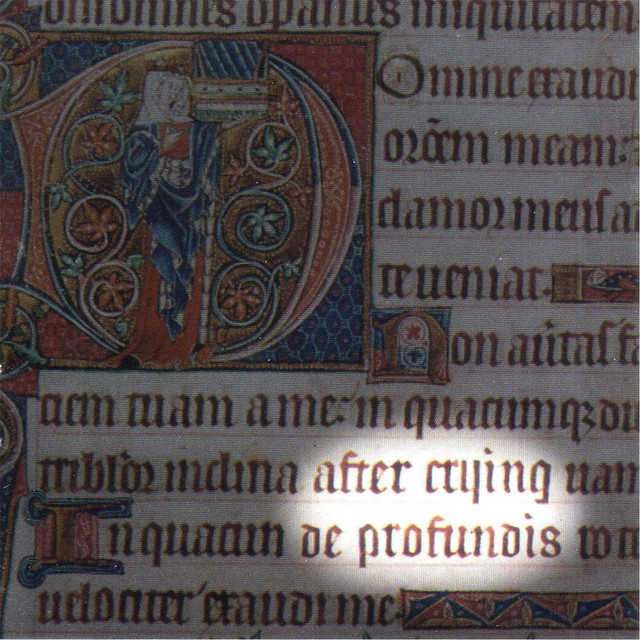 omnes operantes iniquitatem
Domine exaudi
orõem meam:
clamor meus a
te ueniat.
Non aūtas fa
ciem tuam a me: in quacumq; di
tribl'or inclina after crijinq uam
In quacun de profundis uo
uelociter exaudi me